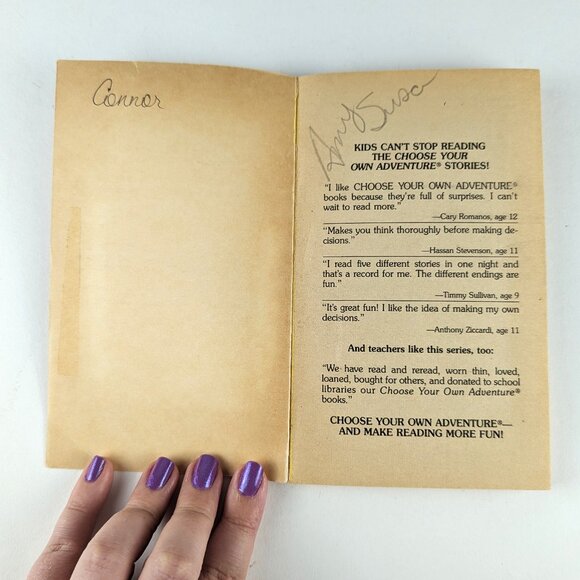 Connor
Amy Susan
KIDS CAN'T STOP READING
THE CHOOSE YOUR
OWN ADVENTURE® STORIES!
"I like CHOOSE YOUR OWN ADVENTURE®
books because they're full of surprises. I can't
wait to read more."
—Cary Romanos, age 12
"Makes you think thoroughly before making de-
cisions."
—Hassan Stevenson, age 11
"I read five different stories in one night and
that's a record for me. The different endings are
fun."
—Timmy Sullivan, age 9
"It's great fun! I like the idea of making my own
decisions."
—Anthony Ziccardi, age 11
And teachers like this series, too:
"We have read and reread, worn thin, loved,
loaned, bought for others, and donated to school
libraries our Choose Your Own Adventure®
books."
CHOOSE YOUR OWN ADVENTURE®—
AND MAKE READING MORE FUN!